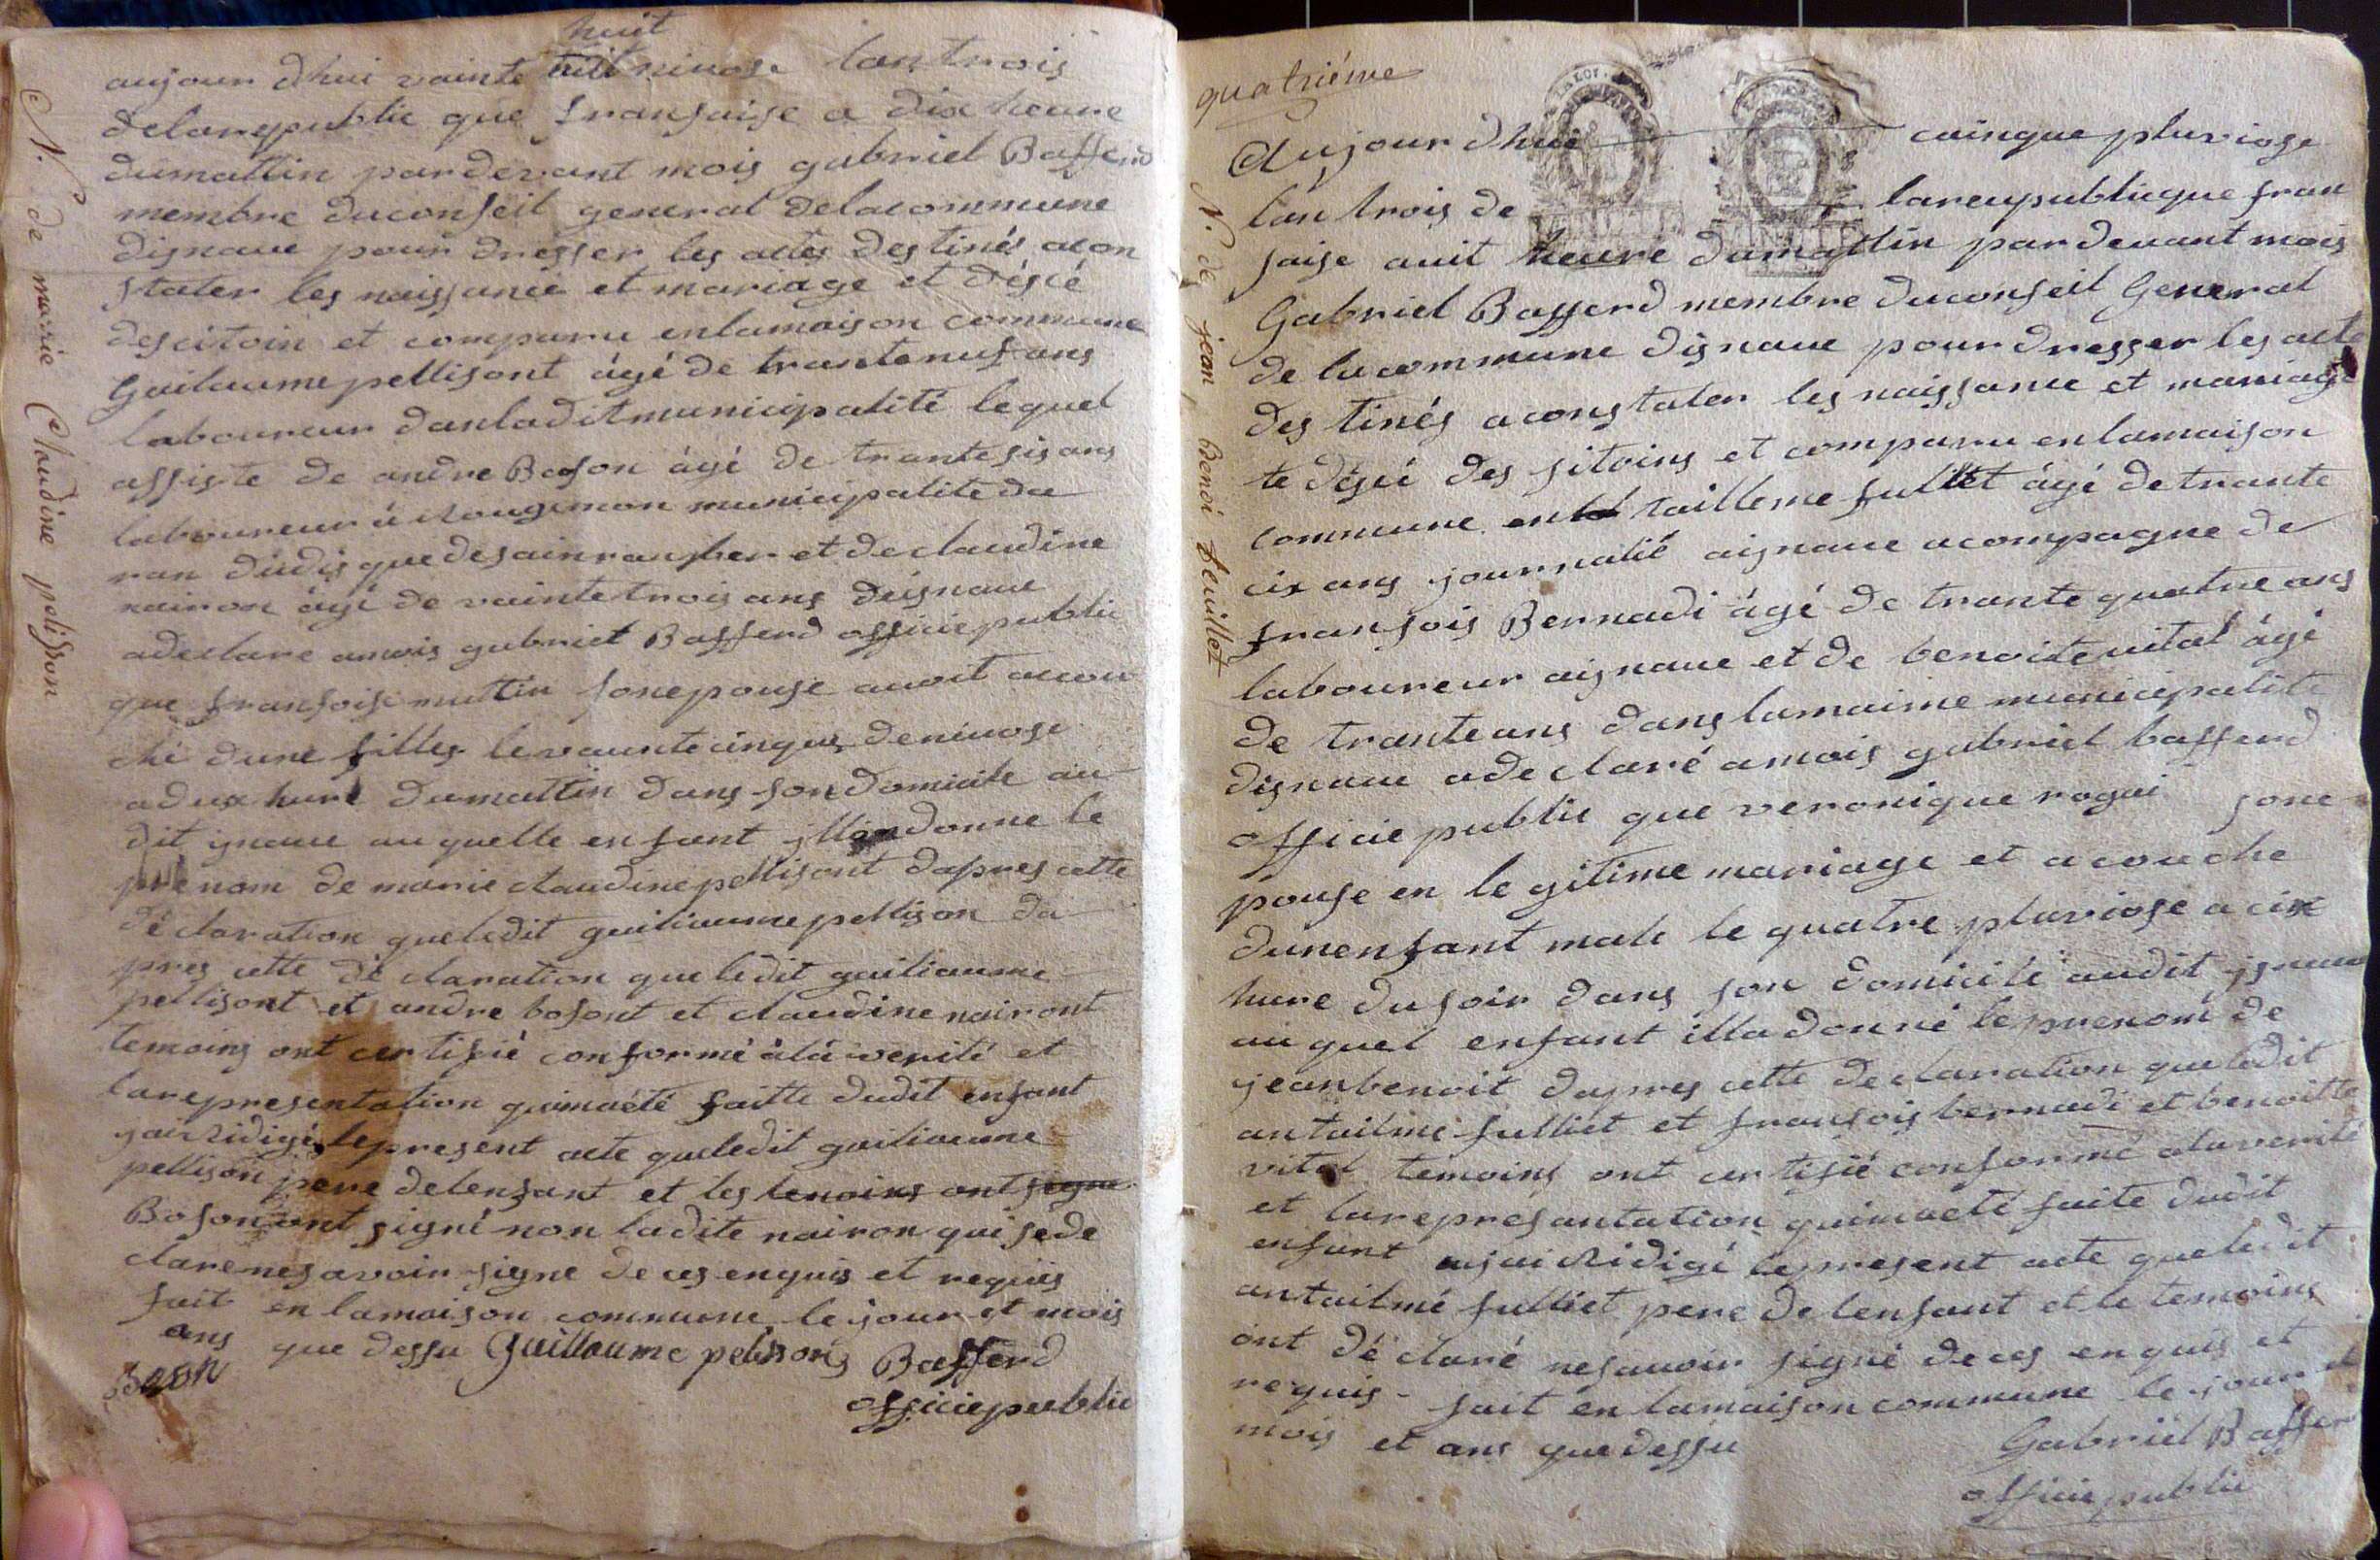 huit
aujour dhui vainte nivose lan trois
delarepublic que fransaise a dix heure
dumattin pardevant mois gabriel Bafferd
membre duconseil general delacommune
dignaue pour dresser les actes destinés acon
stater les naissance et mariage et désié
descitoin et comparu enlamaison commune
Guilaume pellisont ágé de trante nuf ans
laboureur danladit municipalité lequel
assiste de andre Boson ágé de trante sis ans
laboureur á Rougemon municipalite da
ran dudis que desainrauber et de claudine
nairon ágé de vainte trois ans deignaue
adeclare amois gabriel Bafferd officie public
que fransoise muttin sonepouse avoit acou
ché dune filles le vaunte cinque denivose
adeux hure dumattin dans son domicile au
dit ignaue au quelle enfant illa donne le
prenom de marie claudine pellisont dapres cette
déclaration queledit guiliaume pellison da
pres cette déclaration que ledit guiliaume
pellisont et andre bosont et claudine nairont
temoins ont certifié conformé álá verité et
larepresentation quimaété faitte dudit enfant
jai Ridigé lepresent acte queledit guiliaume
pellison pere delenfant et les temoins ont signe
Boson ont signé non ladite nairon qui sede
clare nesavoir signe de ces enquis et requis
fait en lamaison commune le jour et mois
ans que dessu Guillaume pelissons Bafferd
Boson
officie public
N. de marie Claudine pelisson
quatriéme
Aujour dhui cainque pluviose
lan trois de lareupublicque fran
saise auit heure dumattin pardeuant mois
Gabriel Bafferd membre duconseil General
de lacommune dignaue pour dresser les acte
destinés aconstater les naissance et mariage
te désié des sitoins et comparu enlamaison
commune antailleme fulliet ágé detrante
cix ans journalié aignaue acompagne de
fransois Bernadi ágé de trante quatre ans
laboureur aignaue et de benoite vital ágé
de tranteans dans lamaime municipalité
dignaue adeclaré amois gabriel bafferd
officie public que veronique rogui sone
pouse en legitime mariage et acouche
dunenfant male le quatre pluviose a cix
hure dusoir dans son domicile audit ignaue
au quel enfant illadonné leprenom de
jeanbenoit dapres cette declaration queledit
antailme fulliet et fransois bernadi et benoitte
vital temoins ont certifié conformé alaverité
et larepresantation quimaeté faite dudit
enfant jai Ridigé lepresent acte queledit
antailmé fulliet pere delenfant et le temoins
ont déclaré nesavoir signé de ces enquis et
requis - fait en lamaison commune le jour et
mois et ans que dessu
Gabriel Bafferd
officie public
N. de jean Benoi feuillet